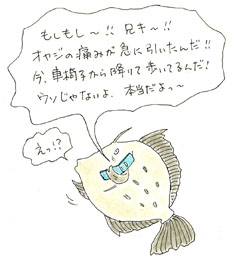 もしもし～!! 兄キ～!!
オヤジの痛みが急に引いたんだ!!
今、車椅子から降りて歩いてるんだ!
ウソじゃないよ、本当だよっ～
えっ!?